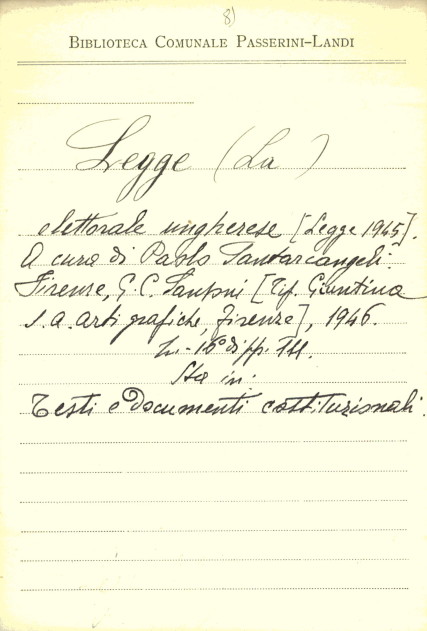 8)
BIBLIOTECA COMUNALE PASSERINI-LANDI
Legge (La)
elettorale ungherese [Legge 1945].
A cura di Paolo Santarcangeli.
Firenze, G. C. Sansoni [Tip. Giuntina
s. a. arti grafiche, Firenze], 1946.
In-16° di pp. 111.
Sta in:
Testi e documenti costituzionali.